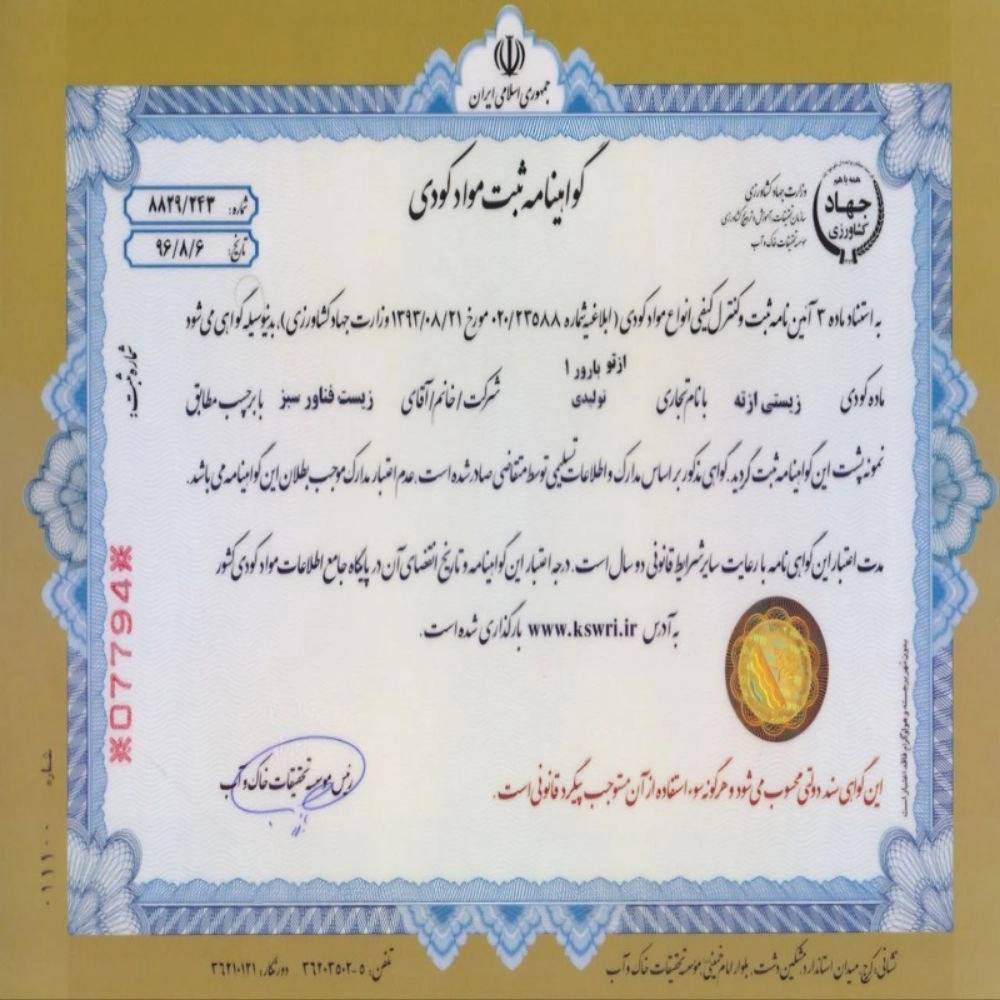 جمهوری اسلامی ایران
همه با هم
جهاد
کشاورزی
وزارت جهاد کشاورزی
سازمان تحقیقات، آموزش و ترویج کشاورزی
موسسه تحقیقات خاک و آب
گواهینامه ثبت مواد کودی
شماره: ۸۸۲۹/۲۴۳
تاریخ: ۹۶/۸/۶
به استناد ماده ۳ آیین نامه ثبت و کنترل کیفی انواع مواد کودی (ابلاغیه شماره ۰۲۰/۲۳۵۸۸ مورخ ۱۳۹۳/۰۸/۲۱ وزارت جهاد کشاورزی)، بدینوسیله گواهی می شود
ماده کودی زیستی ازته با نام تجاری ازتو بارور ۱ تولیدی شرکت/خانم/آقای زیست فناور سبز با برچسب مطابق
نمونه پشت این گواهینامه ثبت گردید. گواهی مذکور بر اساس مدارک و اطلاعات تسلیمی توسط متقاضی صادر شده است. عدم اعتبار مدارک موجب بطلان این گواهینامه می باشد.
مدت اعتبار این گواهی نامه با رعایت سایر شرایط قانونی دو سال است. درجه اعتبار این گواهینامه و تاریخ انقضای آن در پایگاه جامع اطلاعات مواد کودی کشور
به آدرس www.kswri.ir بارگذاری شده است.
شماره ثبت:
※07794※
رئیس موسسه تحقیقات خاک و آب
این گواهی سند دولتی محسوب می شود و هرگونه سوء استفاده از آن مستوجب پیگرد قانونی است.
بدون مهر برجسته و هولوگرام فاقد اعتبار است
شماره ۰۱۱۱۰۰
نشانی: کرج، میدان استاندارد، مشکین دشت، بلوار امام خمینی، موسسه تحقیقات خاک و آب تلفن: ۵-۳۶۲۰۳۵۰۲ دورنگار: ۳۶۲۱۰۱۲۱